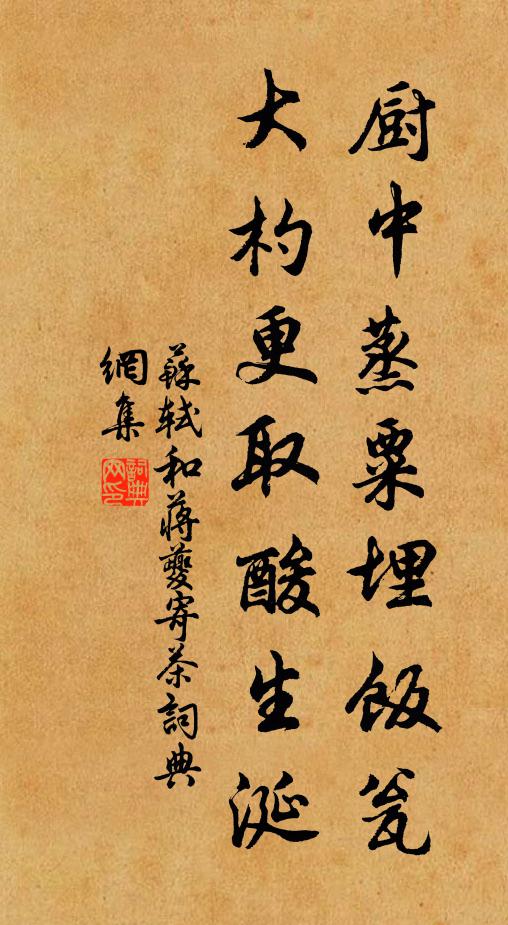 厨中蒸粟埋飯瓮
大杓更取酸生涎
蘇軾和蔣夔寄茶詞典
網集
詞典
网印